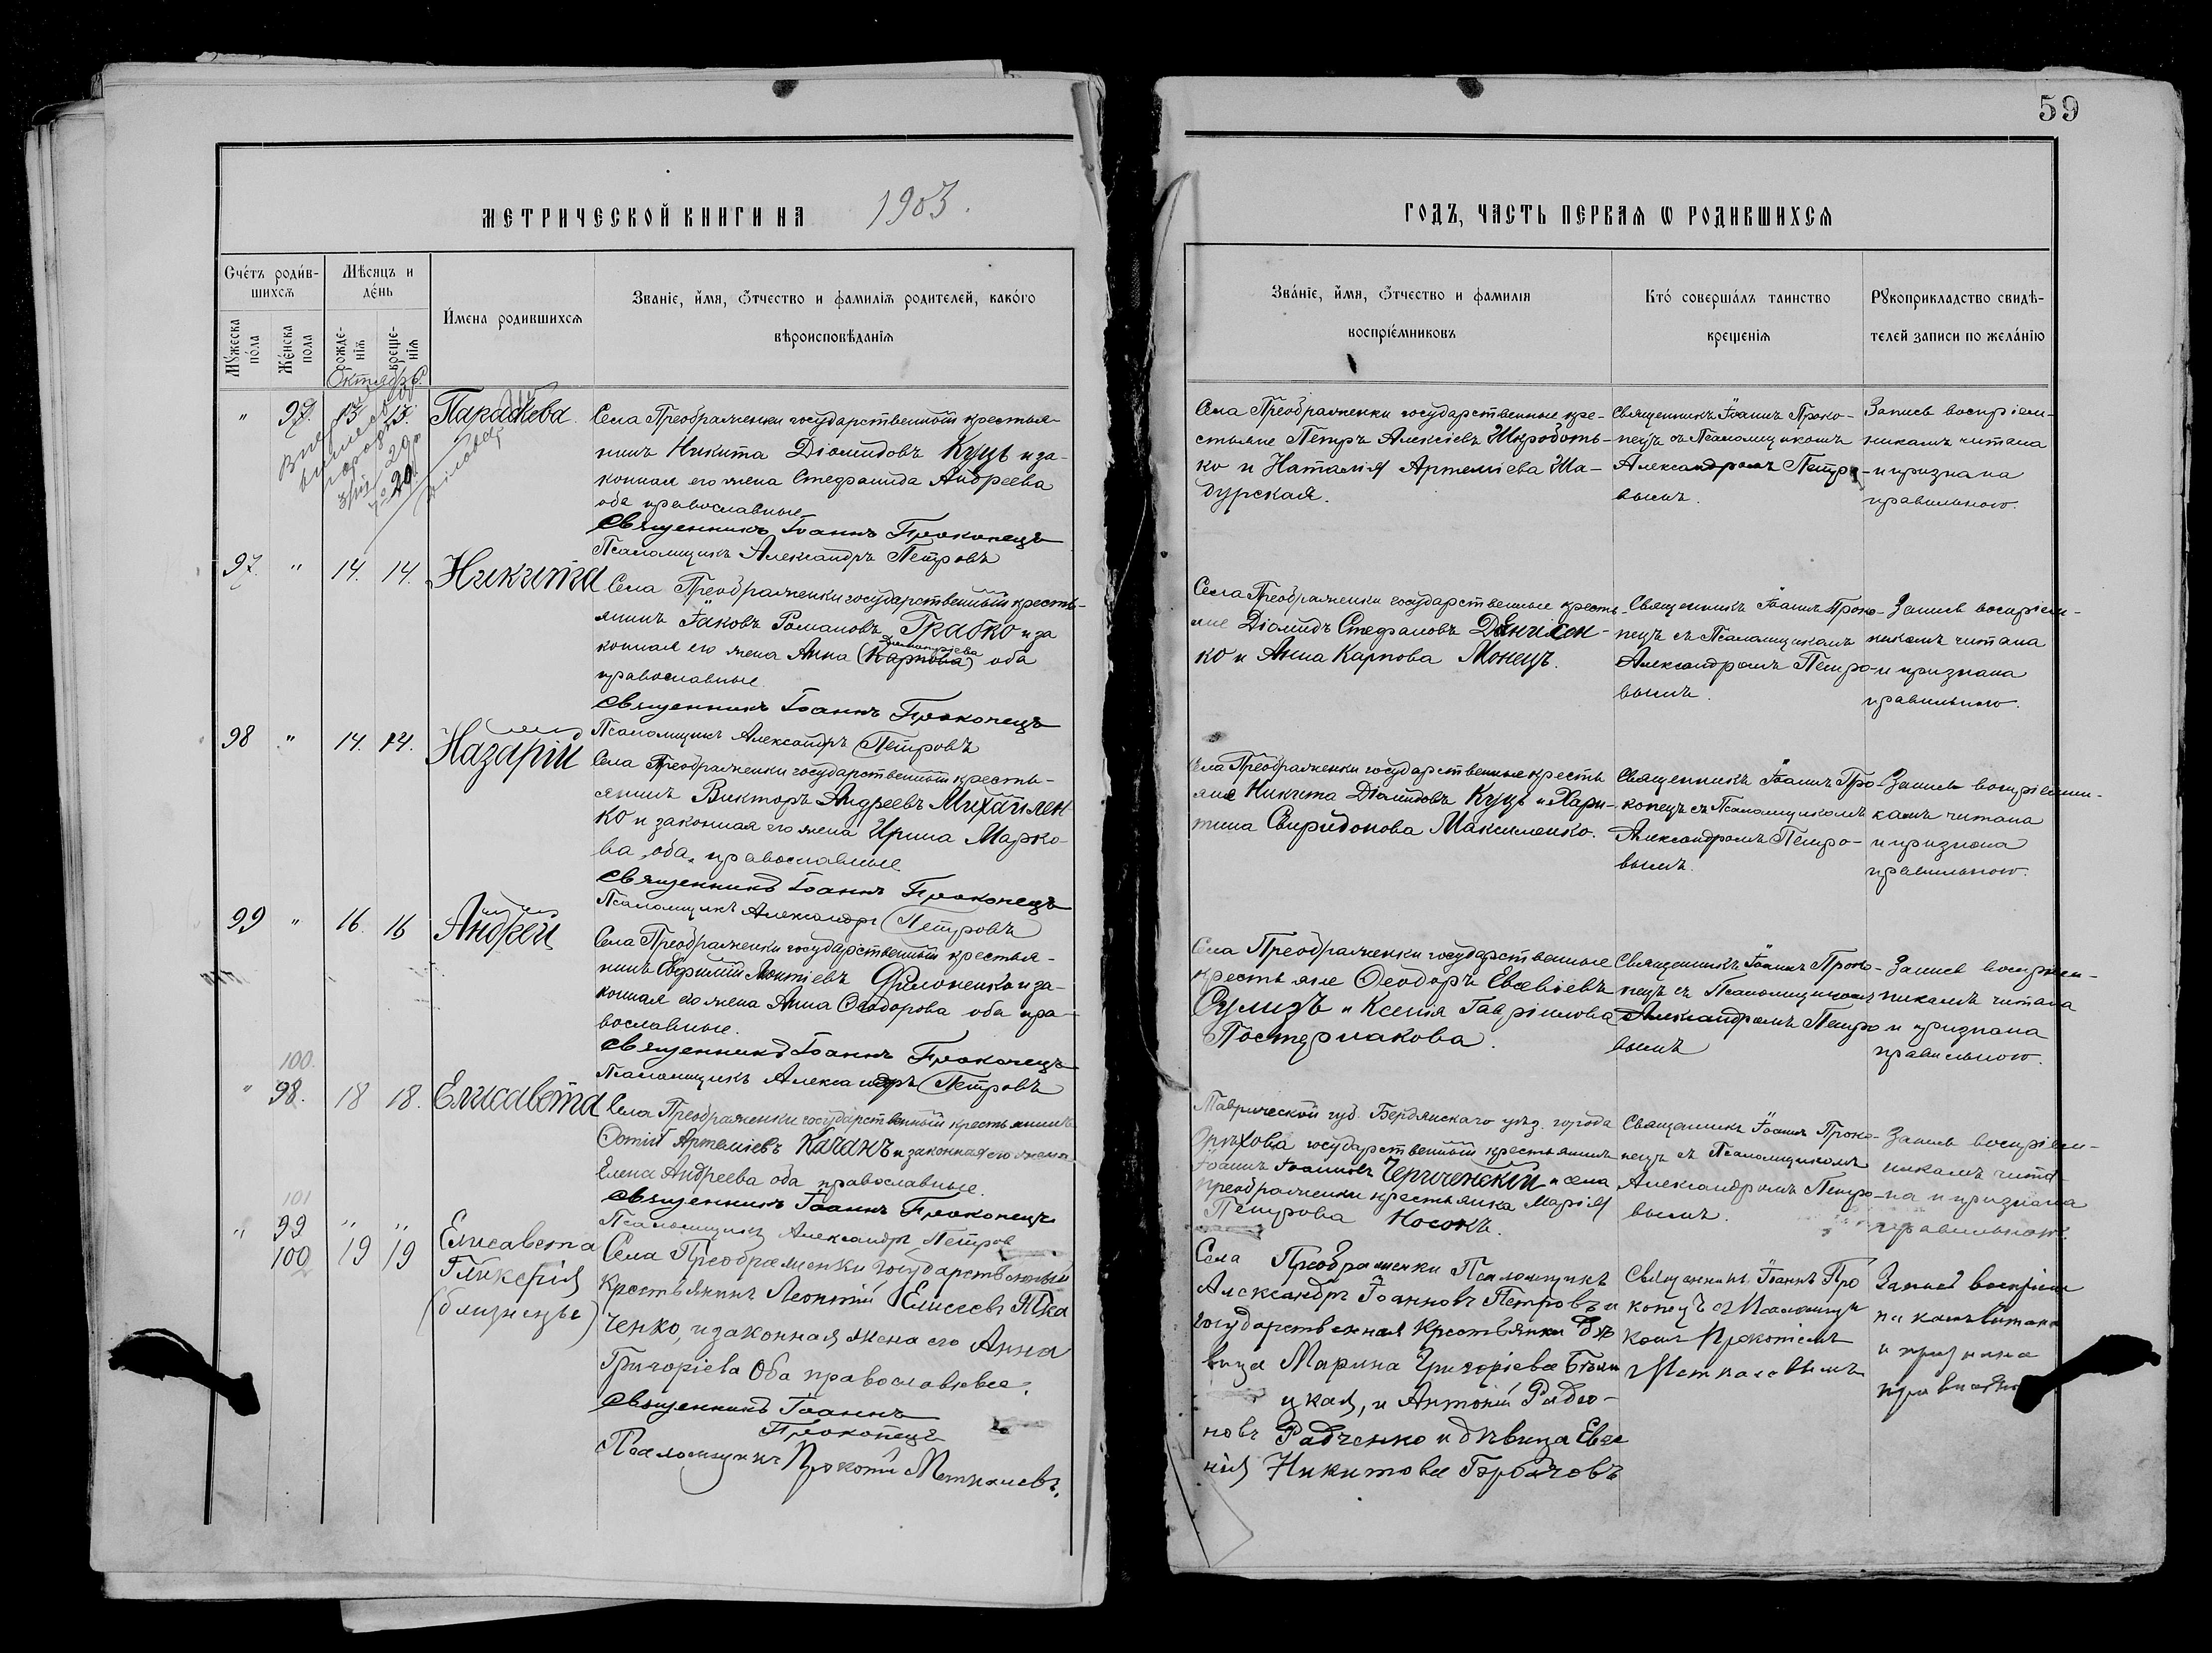 59
МЕТРИЧЕСКОЙ КНИГИ НА 1903.
ГОДЪ, ЧАСТЬ ПЕРВАЯ Ѡ РОДИВШИХСЯ
Счéтъ роди́в-
шихсѧ
Мѣсяцъ и
дéнь
И҆мена родившихсѧ
Званіе, и҆мя, ѻ҆тчество и фамиліѧ родителей, како́го
вѣроисповѣданіѧ
Мꙋ́жеска
по́ла
Же́нска
пола
Рожде-
ніѧ
Креще-
ніѧ
Зва́ніе, и҆мя, ѻ҆тчество и фамилія
воспріе́мниковъ
Кто́ соверша́лъ таинство
крещенія
Рꙋкоприкладство свидѣ-
телей записи по жела́нію
Октябрь.
" 97. 13 13. Параскева
Села Преображенки государственный крестья-
нинъ Никита Діомидовъ Куць и за-
конная его жена Стефанида Андреева
оба православные
Священникъ Іоаннъ Прокопецъ
Псаломщикъ Александръ Петровъ
Села Преображенки государственные кре-
стьяне Петръ Алексіевъ Шкроботь-
ко и Наталія Артеміева Ша-
дурская.
Священникъ Іоаннъ Проко-
пецъ съ Псаломщикомъ
Александромъ Петро-
вымъ.
Запись воспріем-
никамъ читана
и признана
правильною.
97. " 14. 14. Никита
Села Преображенки государственный кресть-
янинъ Іаковъ Романовъ Грабко и за
Димитріева
конная его жена Анна (Карпова) оба
православные.
Священникъ Іоаннъ Прокопецъ
Псаломщикъ Александръ Петровъ
Села Преображенки государственные кресть-
яне Діомидъ Стефановъ Денисен-
ко и Анна Карпова Монецъ.
Священникъ Іоаннъ Проко-
пецъ съ Псаломщикомъ
Александромъ Петро-
вымъ.
Запись воспріем-
никамъ читана
и признана
правильною.
98 " 14. 14. Назарій
Села Преображенки государственный кресть-
янинъ Викторъ Андреевъ Михайлен
ко и законная его жена Ирина Марко-
ва, оба православные
Священникъ Іоаннъ Прокопецъ
Псаломщикъ Александръ Петровъ
Села Преображенки государственные кресть
яне Никита Діомидовъ Куць и Хари-
тина Свиридонова Максименко.
Священникъ Іоаннъ Про-
копецъ съ Псаломщикомъ
Александромъ Петро-
вымъ.
Запись воспріемни-
камъ читана
и признана
правильною.
99 " 16. 16 Андрей
Села Преображенки государственный крестья-
нинъ Ефимій Леонтіевъ Филоненко и за-
конная его жена Анна Ѳеодорова оба пра-
вославные.
Священникъ Іоаннъ Прокопецъ
Псаломщикъ Александръ Петровъ
Села Преображенки государственные
крестьяне Ѳеодоръ Евсевіевъ
Сулизъ и Ксенія Гавріилова
Постернакова.
Священникъ Іоаннъ Проко-
пецъ съ Псаломщикомъ
Александромъ Петро
вымъ
Запись воспріем-
никамъ читана
и признана
правильною.
100.
" 98. 18 18. Елисавета
Села Преображенки государственный крестьянинъ
Фотій Артеміевъ Качанъ и законная его жена
Елена Андреева оба православные.
Священникъ Іоаннъ Прокопецъ
Псаломщикъ Александръ Петров
Таврической губ. Бердянскаго уѣз. города
Орѣхова государственный крестьянинъ
Іоаннъ Іоанновъ Черниченскій и села
Преображенки крестьянка Марія
Петрова Носокъ.
Священникъ Іоаннъ Проко-
пецъ съ Псаломщикомъ
Александромъ Петро-
вымъ.
Запись воспріем-
никамъ чита-
на и признана
правильною.
101
" 99 " " Елисавета
100 19 19 Гликерія
(близнецы)
Села Преображенки государственный
крестьянинъ Леонтій Елисеевъ Тка
ченко, и законная жена его Анна
Григоріева Оба православные.
Священникъ Іоаннъ
Прокопецъ
Псаломщикъ Прокопій Метикаевъ.
Села Преображенки Псаломщикъ
Александръ Іоанновъ Петровъ и
государственная крестьянка дѣ
вица Марина Григоріева
цкая, и Антоній Родіо-
новъ Радченко и дѣвица Евге
нія Никитова Горбачовъ
Священникъ Іоаннъ Про
копецъ съ Псаломщи
комъ Прокопіемъ
Запись воспріем
никамъ читана
и признана